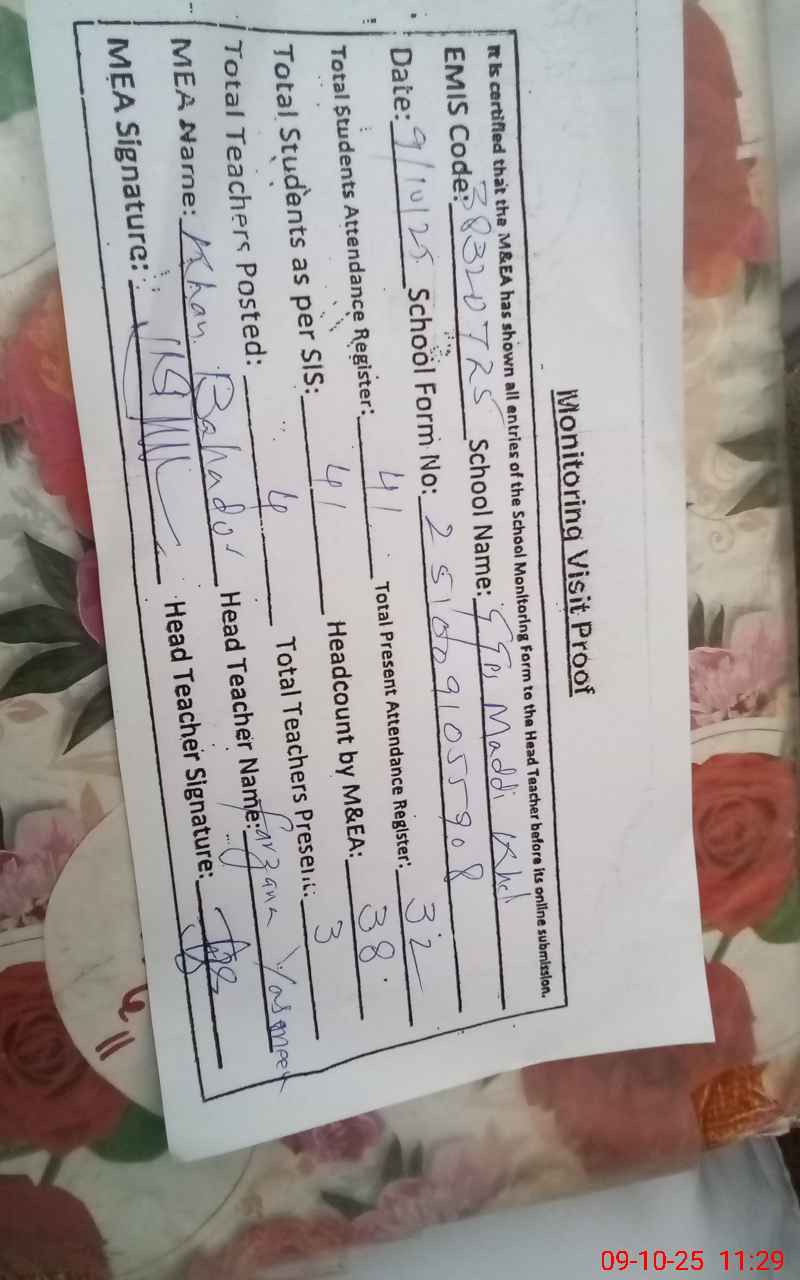 Monitoring Visit Proof
It is certified that the M&EA has shown all entries of the School Monitoring Form to the Head Teacher before its online submission.
EMIS Code: 38320725 School Name: GGPS Maddi Khel
Date: 9/10/25 School Form No: 2510091055908
Total Students Attendance Register: 41 Total Present Attendance Register: 32
Total Students as per SIS: 41 Headcount by M&EA: 38
Total Teachers Posted: 4 Total Teachers Present: 3
MEA Name: Khan Bahador Head Teacher Name: Farzana Yasmeen
MEA Signature: Head Teacher Signature:
09-10-25 11:29